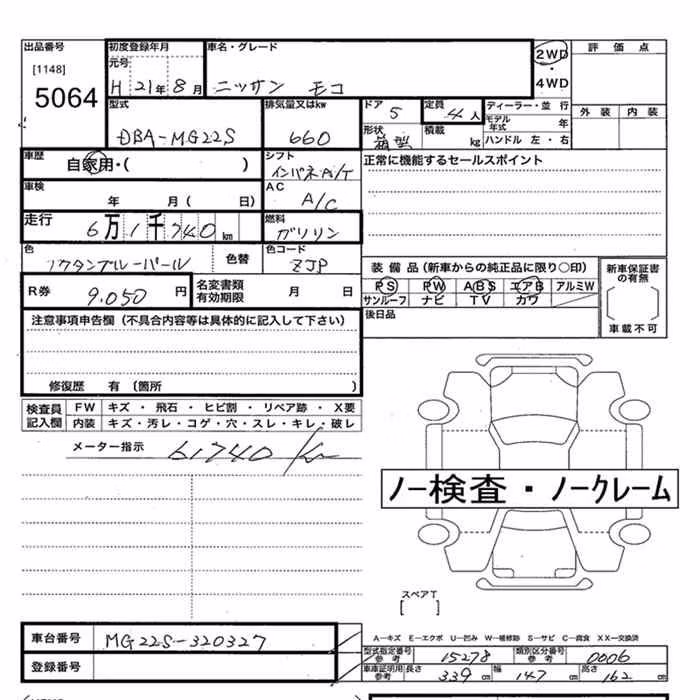 出品番号 初度登録年月 車名・グレード 2WD 評価点
[1148] 元号 ・
5064 H 21年 8月 ニッサン モコ 4WD
型式 排気量又はkw ドア 5 定員 4人 ディーラー・並行 外装 内装
DBA-MG22S 660 形状 箱型 積載 kg モデル年式 年
ハンドル 左・右
車歴 自家用・( ) シフト インパネA/T 正常に機能するセールスポイント
車検 年 月( 日) AC A/C
走行 6万1千740km 燃料 ガソリン
色 色替 色コード ZJP 装備品(新車からの純正品に限り○印) 新車保証書の有無
R券 9.050円 名変書類有効期限 月 日 PS PW ABS エアB アルミW
サンルーフ ナビ TV カワ
注意事項申告欄(不具合内容等は具体的に記入して下さい) 後日品 車載不可
修復歴 有(箇所 )
検査員記入欄 FW キズ・飛石・ヒビ割・リペア跡・X要
内装 キズ・汚レ・コゲ・穴・スレ・キレ・破レ
メーター指示 61740 Km
ノー検査・ノークレーム
スペアT
[ ]
車台番号 MG22S-320327 A―キズ E―エクボ U―凹み W―補修跡 S―サビ C―腐食 XX―交換済
登録番号 型式指定番号参考 15278 類別区分番号参考 0006
車庫証明用参考 長さ 339cm 幅 147cm 高さ 162cm